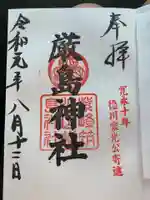 奉拝
寛永十年
徳川家光公寄進
厳島神社
令和元年八月十三日